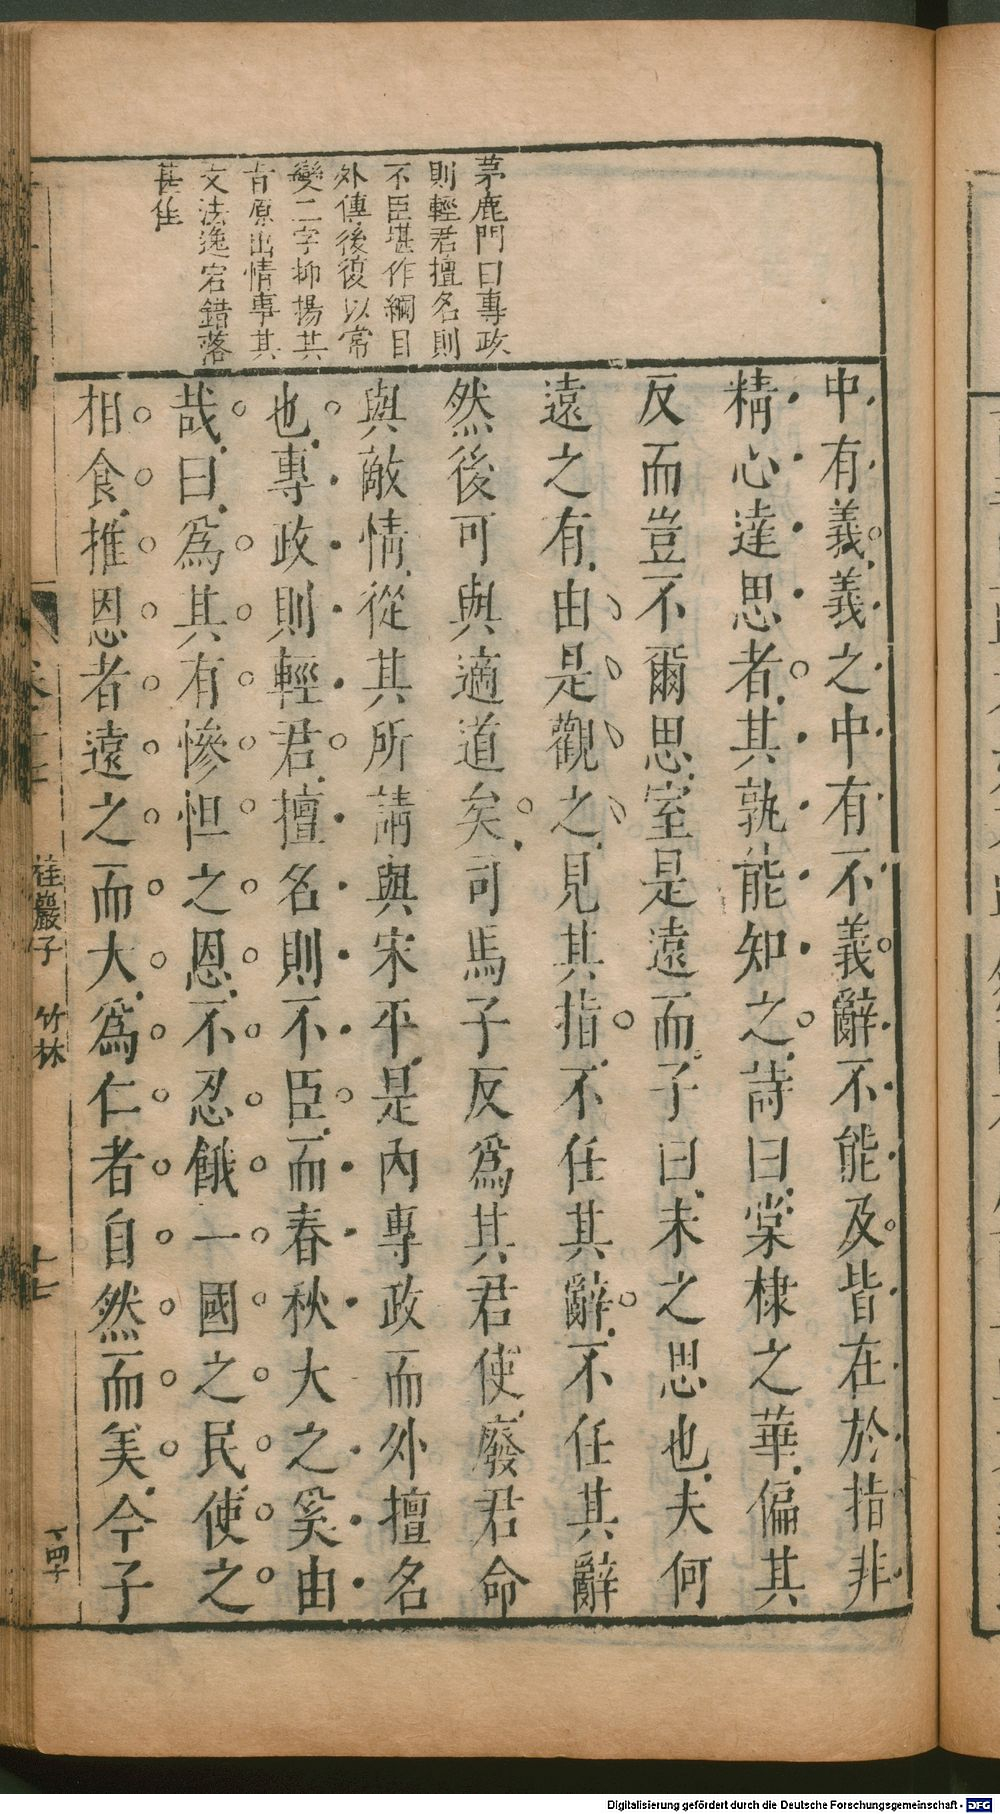 茅鹿門曰專政
則輕君擅名則
不臣堪作綱目
外傳後復以常
變二字抑揚其
旨原出情事其
文法逸宕錯落
甚佳
中有義義之中有不義辭不能及皆在於指非
精心達思者其孰能知之詩曰棠棣之華偏其
反而豈不爾思室是遠而子曰未之思也夫何
遠之有由是觀之見其指不任其辭不任其辭
然後可與適道矣司馬子反爲其君使廢君命
與敵情從其所請與宋平是內專政而外擅名
也專政則輕君擅名則不臣而春秋大之奚由
哉曰爲其有慘怛之恩不忍餓一國之民使之
相食推恩者遠之而大爲仁者自然而美今子
桂巖子 竹林
十七
Digitalisierung gefördert durch die Deutsche Forschungsgemeinschaft - DFG